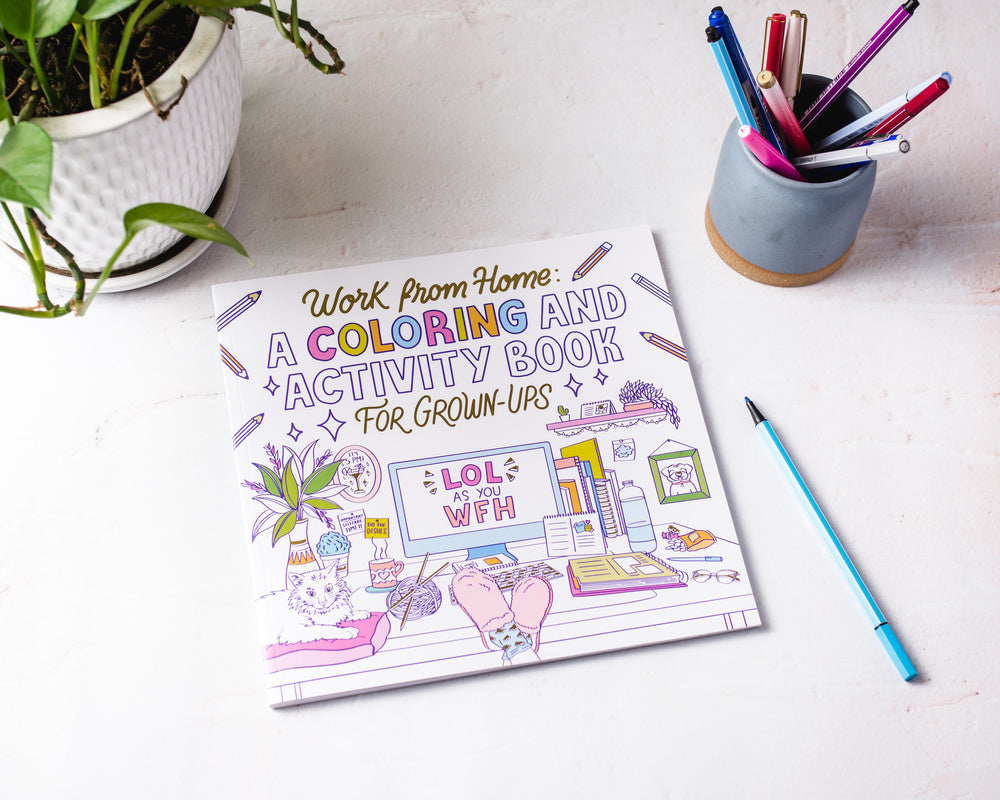 Work from Home:
A COLORING AND
ACTIVITY BOOK
FOR GROWN-UPS
LOL
AS YOU
WFH
DO THE
DISHES